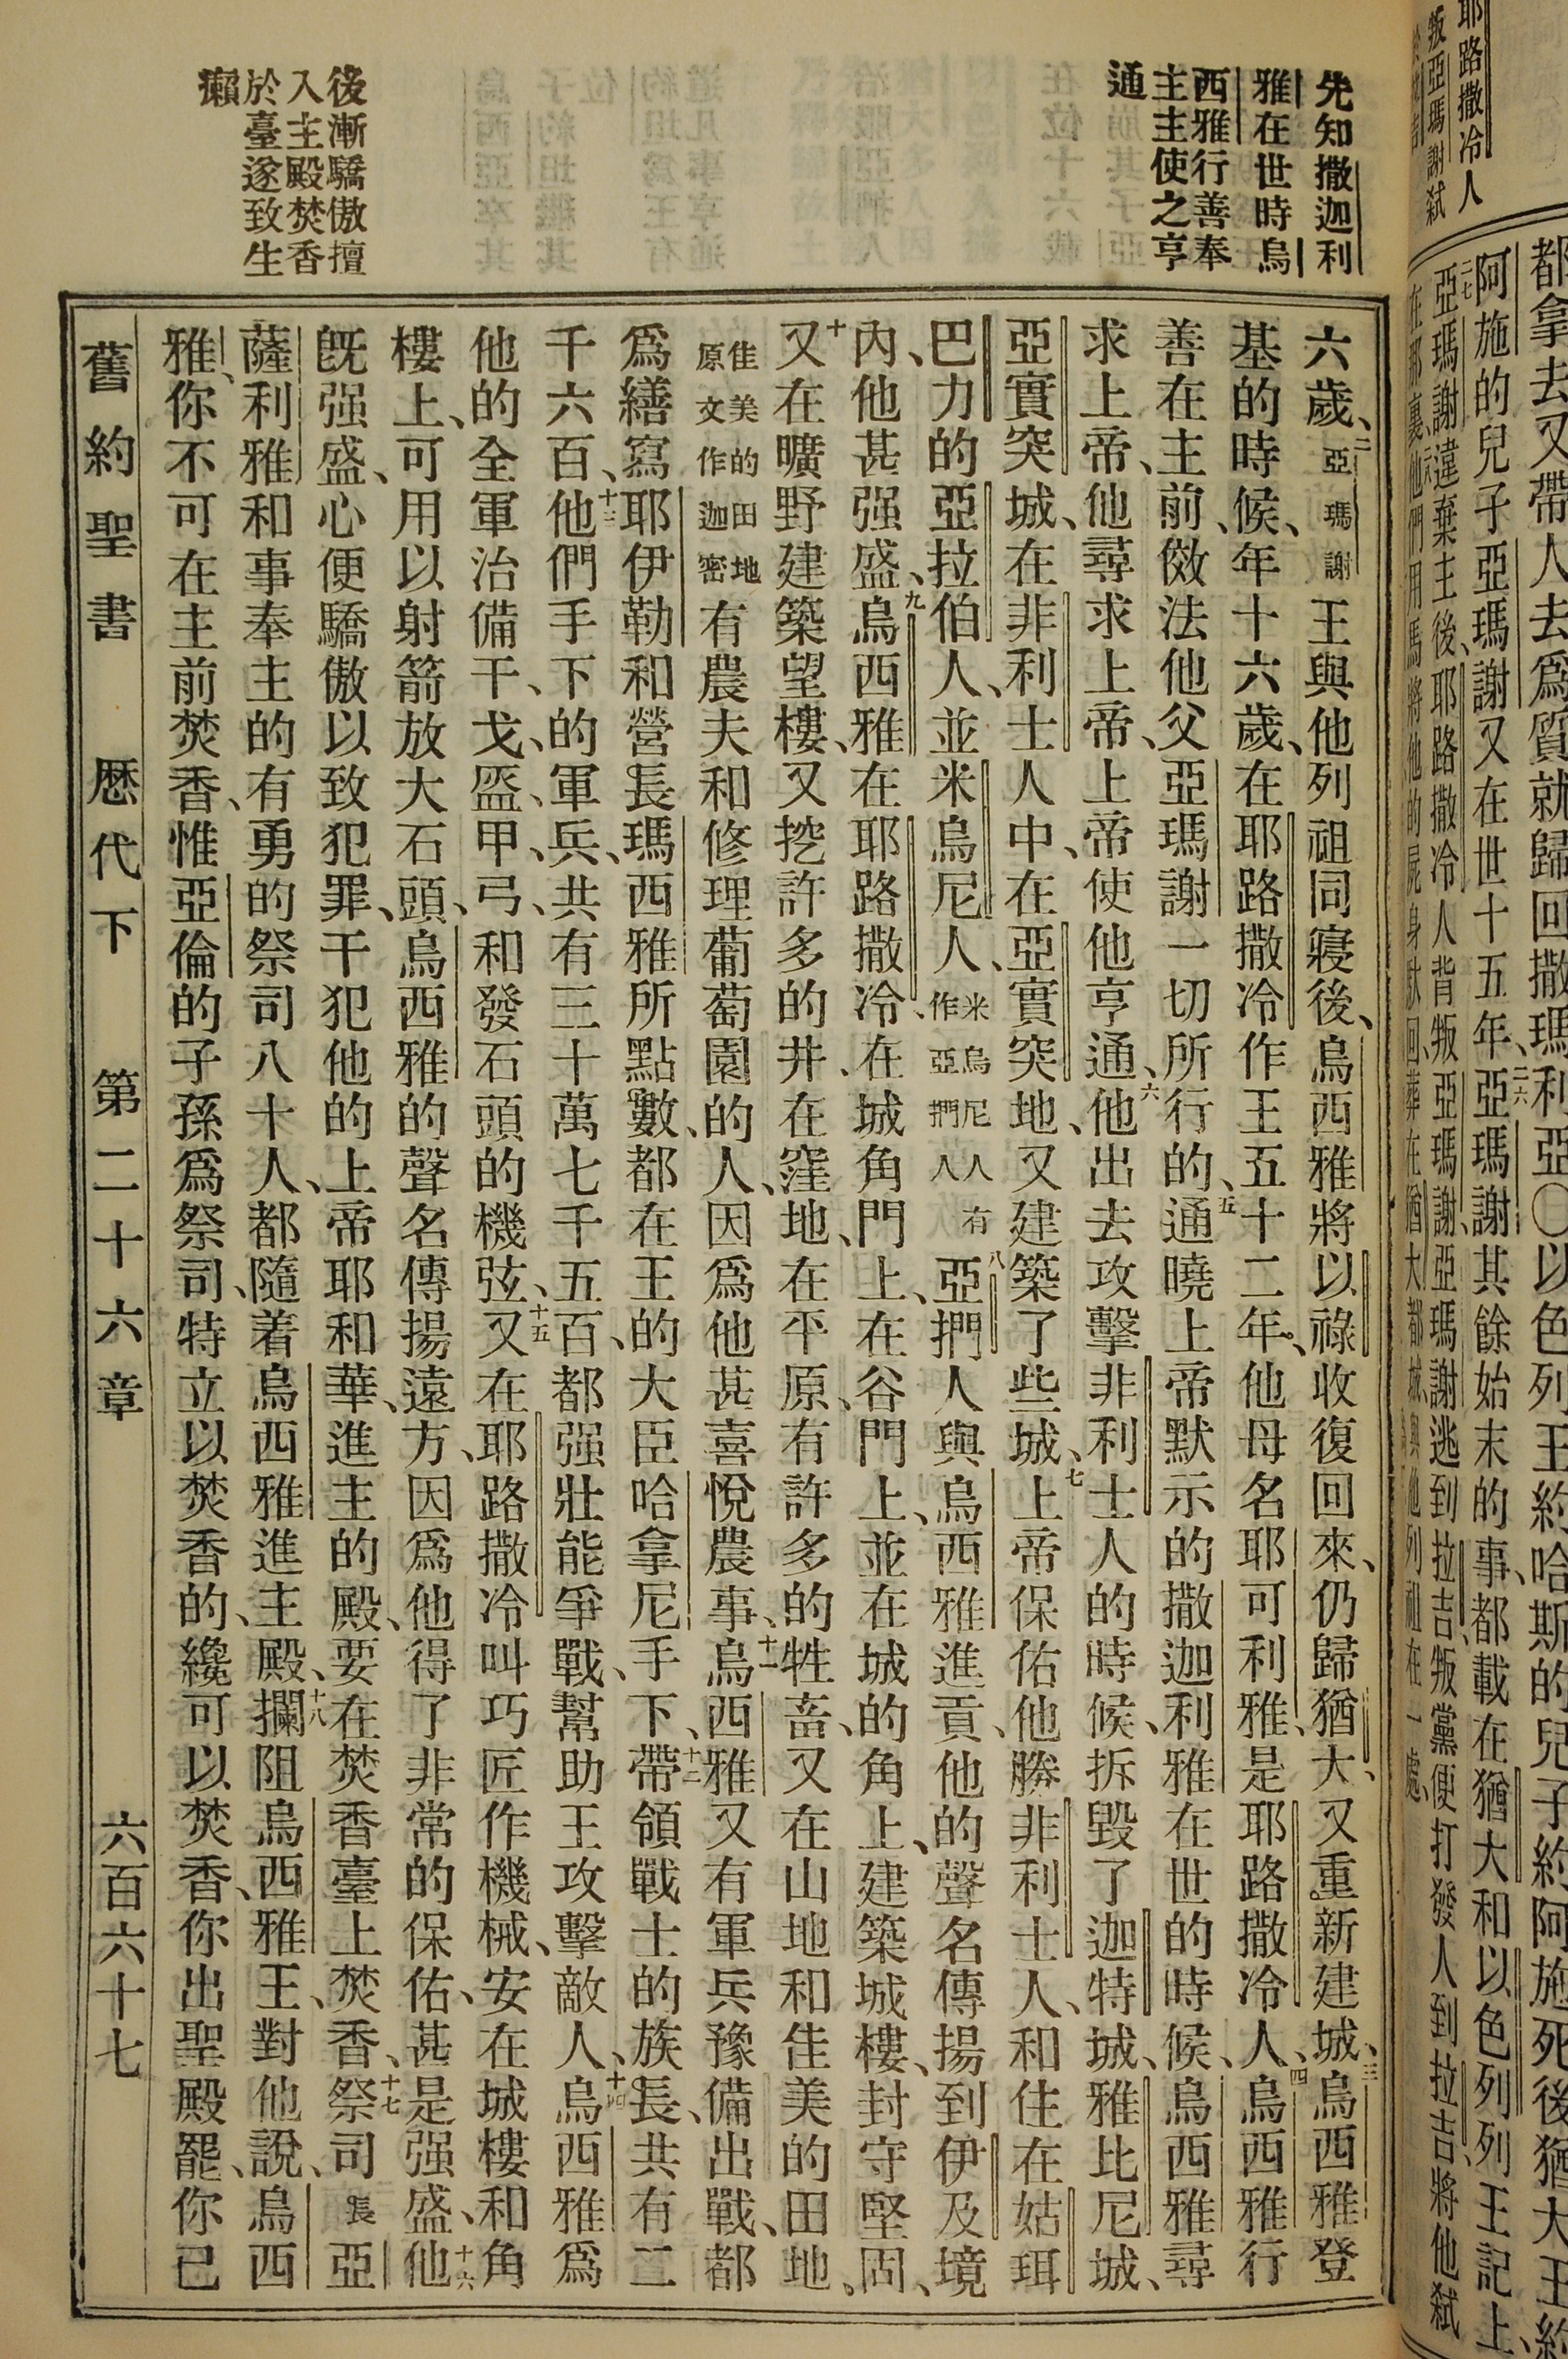 耶路撒冷人
叛亞瑪謝弒
都拿去又帶人去爲質就歸回撒瑪利亞〇以色列王約哈斯的兒子約阿施死後猶大王約
阿施的兒子亞瑪謝又在世十五年、二六亞瑪謝其餘始末的事、都載在猶大和以色列列王記上、
二七亞瑪謝違棄主後、耶路撒冷人背叛亞瑪謝、亞瑪謝逃到拉吉、叛黨便打發人到拉吉、將他弒
在那裏、二八他們用馬將他的屍身馱回、葬在猶大都城、與他列祖在一處、
先知撒迦利
雅在世時烏
西雅行善奉
主主使之亨
通
後漸驕傲擅
入主殿焚香
於臺遂致生
癩
六歲、二亞瑪謝王與他列祖同寢後、烏西雅將以祿收復回來、仍歸猶大、又重新建城、三烏西雅登
基的時候、年十六歲、在耶路撒冷作王五十二年、他母名耶可利雅、是耶路撒冷人、四烏西雅行
善在主前、傚法他父亞瑪謝一切所行的、五通曉上帝默示的撒迦利雅在世的時候、烏西雅尋
求上帝、他尋求上帝、上帝使他亨通、六他出去攻擊非利士人的時候、拆毀了迦特城、雅比尼城、
亞實突城、在非利士人中、在亞實突地、又建築了些城、七上帝保佑他勝非利士人、和住在姑珥
巴力的亞拉伯人、並米烏尼人、米烏尼人有作亞捫人八亞捫人與烏西雅進貢、他的聲名傳揚到伊及境
內、他甚强盛、九烏西雅在耶路撒冷、在城角門上、在谷門上、並在城的角上、建築城樓、封守堅固、
十又在曠野建築望樓、又挖許多的井、在窪地、在平原、有許多的牲畜、又在山地和佳美的田地、
佳美的田地原文作迦密有農夫和修理葡萄園的人、因爲他甚喜悅農事、十一烏西雅又有軍兵豫備出戰、都
爲繕寫耶伊勒和營長瑪西雅所點數、都在王的大臣哈拿尼手下、十二帶領戰士的族長、共有二
千六百、十三他們手下的軍兵、共有三十萬七千五百、都强壯能爭戰、幫助王攻擊敵人、十四烏西雅爲
他的全軍治備干、戈、盔、甲、弓、和發石頭的機弦、十五又在耶路撒冷叫巧匠作機械、安在城樓和角
樓上、可用以射箭放大石頭、烏西雅的聲名傳揚遠方、因爲他得了非常的保佑、甚是强盛、十六他
旣强盛、心便驕傲以致犯罪、干犯他的上帝耶和華、進主的殿、要在焚香臺上焚香、十七祭司長亞
薩利雅和事奉主的有勇的祭司八十人、都隨着烏西雅進主殿、十八攔阻烏西雅王、對他說、烏西
雅、你不可在主前焚香、惟亞倫的子孫爲祭司、特立以焚香的、纔可以焚香、你出聖殿罷、你已
舊約聖書　歷代下　第二十六章　六百六十七